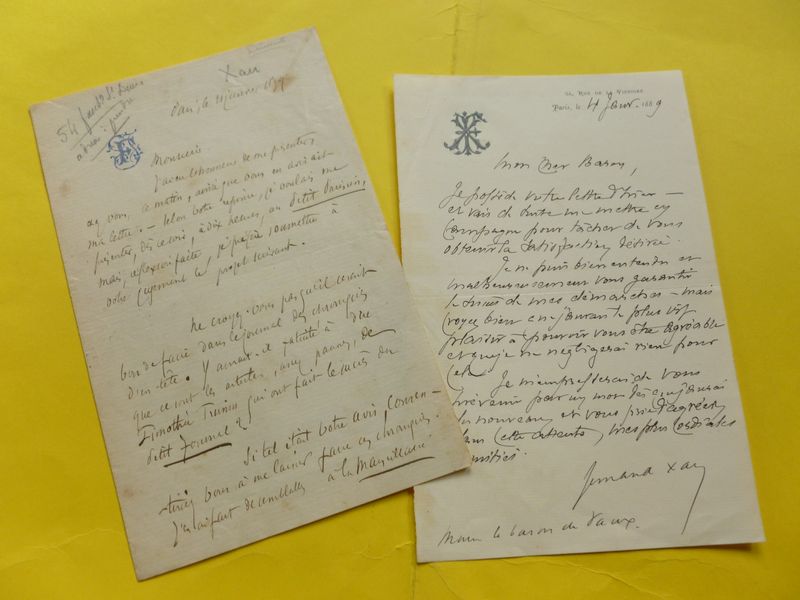 Xau
54 faub. St Denis
Paris, le 21 janvier 1879
Monsieur
J'ai eu l'honneur de me présenter
chez vous, ce matin, ainsi que vous en avait avisé
ma lettre. — Selon votre réponse, je voulais me
présenter, dès ce soir, à dix heures, au Petit Parisien,
mais, réflexion faite, je préfère soumettre à
votre jugement le projet suivant.
Ne croyez-vous pas qu'il serait
bon de faire dans le journal des chroniques
d'en-tête. Y aurait-il témérité à dire
que ce sont les articles, assez pauvres, de
Timothée Trimm qui ont fait le succès du
Petit Journal ?
Si tel était votre avis, consen-
tiriez-vous à me laisser faire ces chroniques.
J'en ai fait de semblables à la Marseillaise.
24, Rue de la Victoire
Paris, le 4 Janv. 1889
Mon cher Baron,
Je possède votre lettre d'hier —
et vais de suite me mettre en
campagne pour tâcher de vous
obtenir la satisfaction désirée.
Je ne puis bien entendu et
malheureusement vous garantir
le succès de mes démarches — mais
croyez bien que j'aurai le plus vif
plaisir à pouvoir vous être agréable
et que je ne négligerai rien pour
cela.
Je m'empresserai de vous
prévenir pour un mot dès que j'aurai
du nouveau, et vous prie d'agréer,
dans cette attente, mes plus cordiales
amitiés.
Fernand Xau
Monr le baron de Vaux.